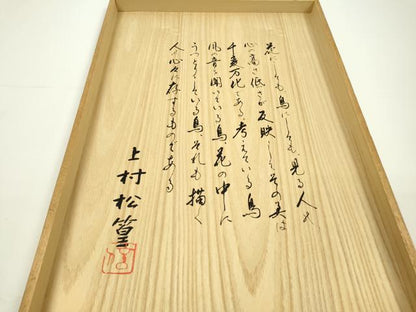 花にしても鳥にしても見る人の
心の高さ低さが反映してその美は
千差万化である 考えている鳥
風の音を聞いている鳥、花の中に
うっとりしている鳥、それも描く
人の心々に存するものである
上村松篁